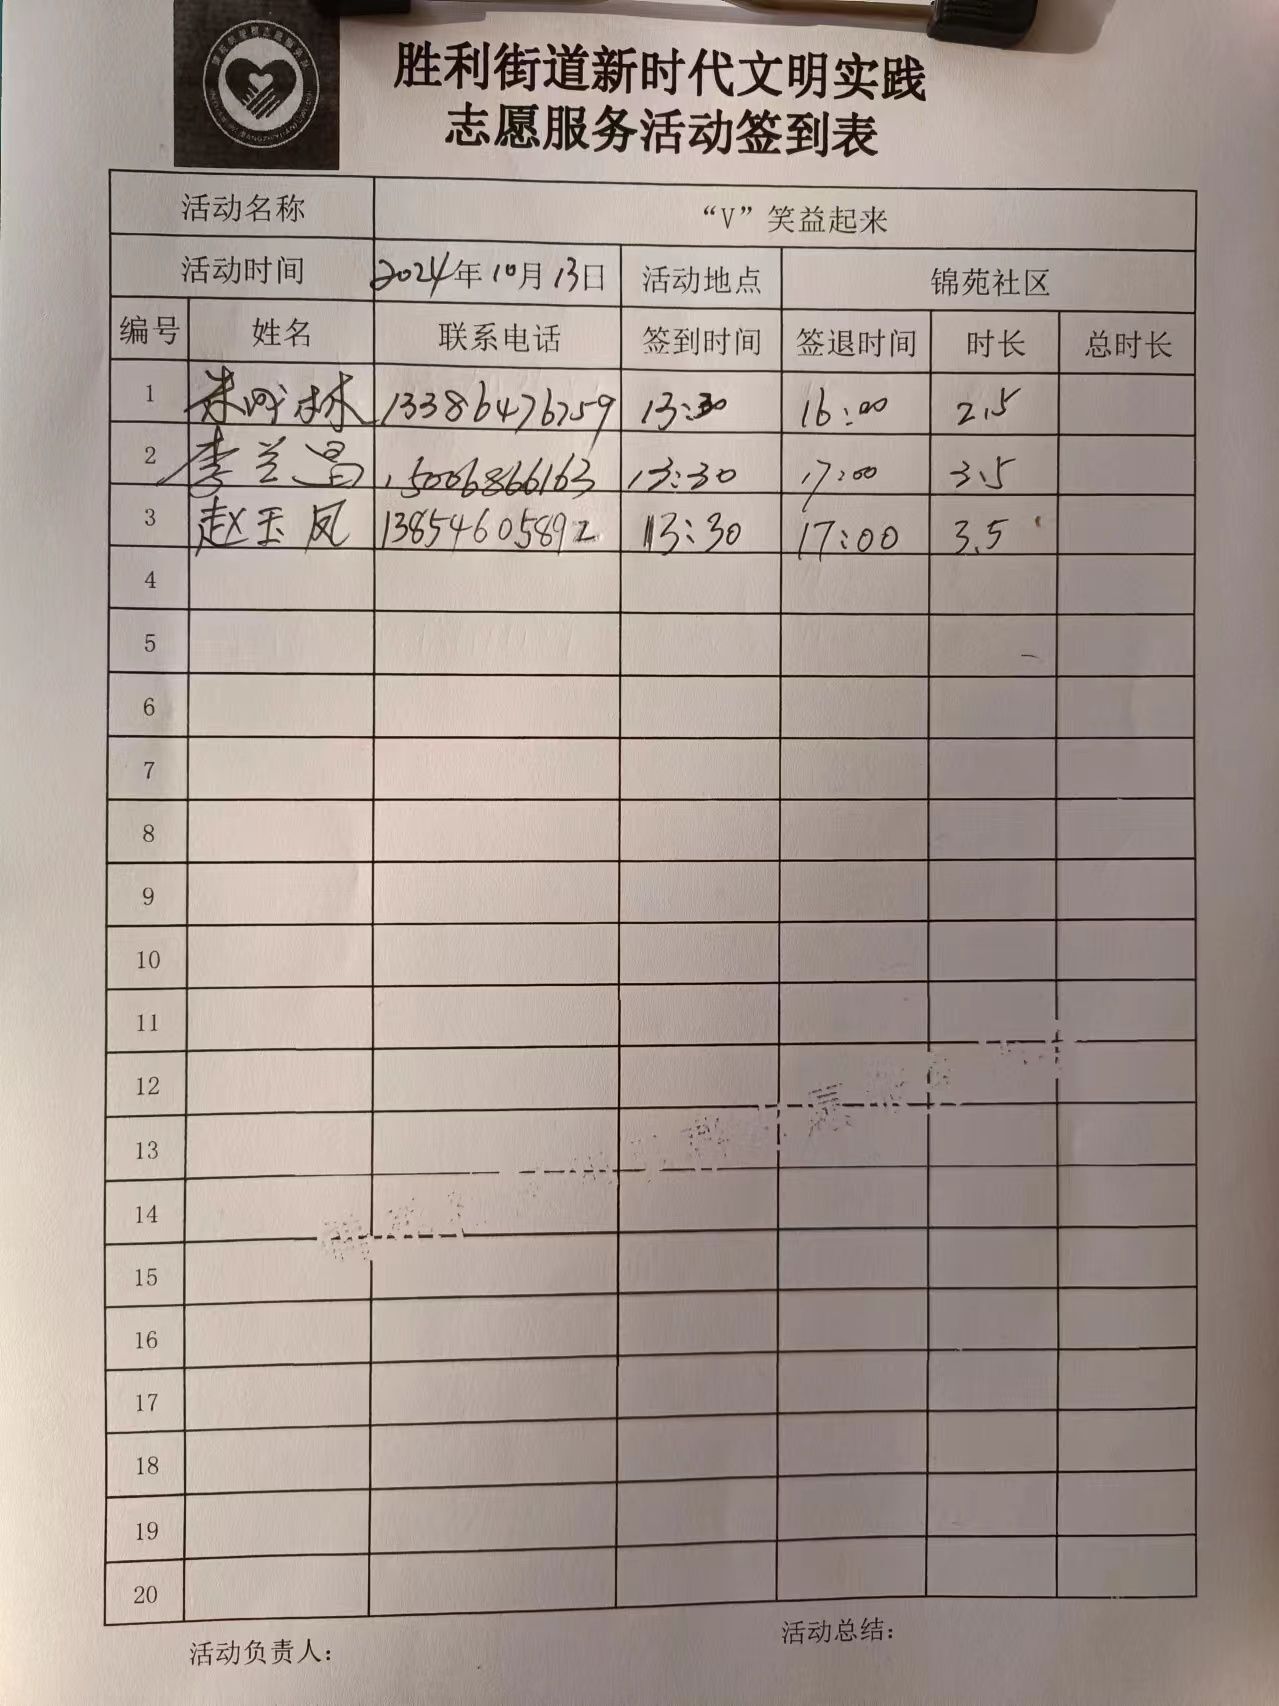 胜利街道新时代文明实践
志愿服务活动签到表
活动名称 “V”笑益起来
活动时间 2024年10月13日 活动地点 锦苑社区
编号 姓名 联系电话 签到时间 签退时间 时长 总时长
1 林 13386476759 13:30 16:00 2.5
2 李兰昌 15006866163 13:30 17:00 3.5
3 赵玉凤 13854605892 13:30 17:00 3.5
4
5
6
7
8
9
10
11
12
13
14
15
16
17
18
19
20
活动负责人: 活动总结: